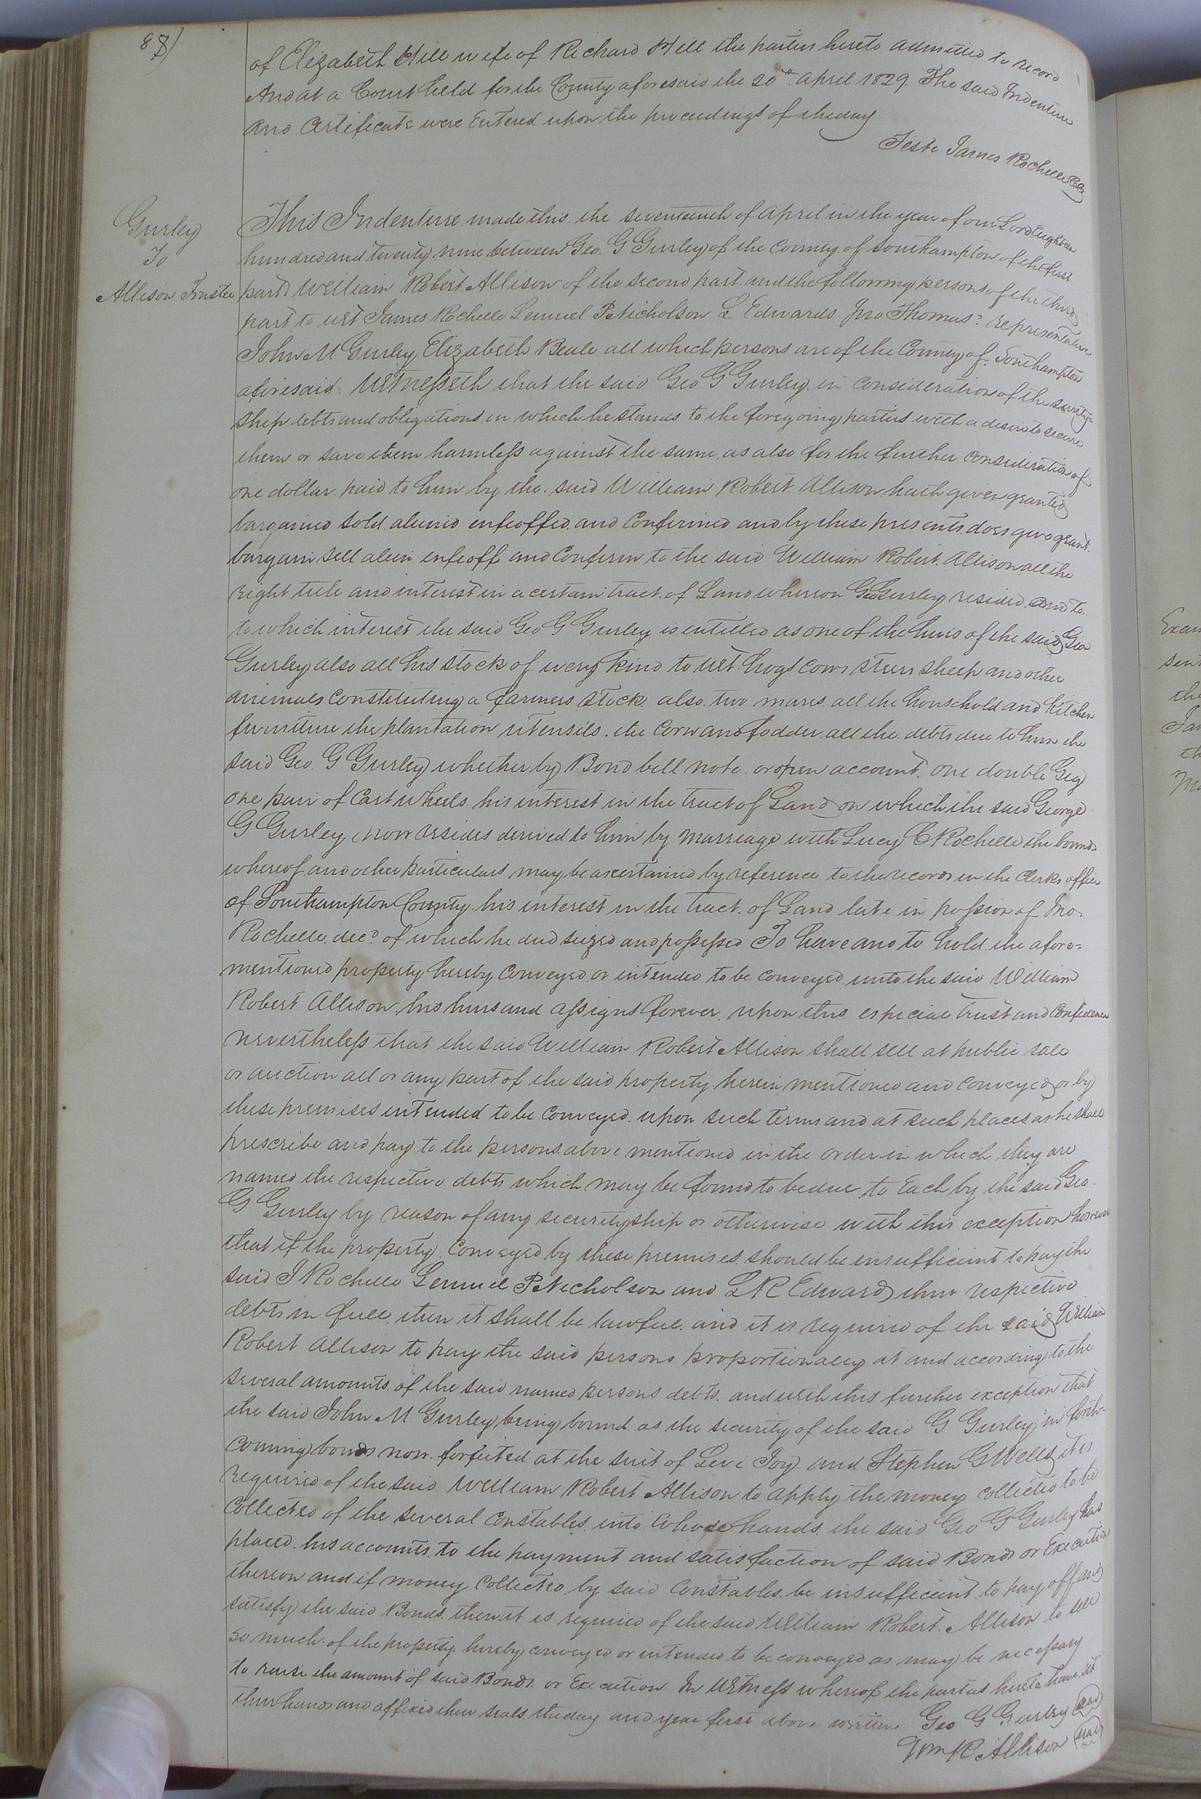 87)
of Elizabeth Hill wife of Richard Hill the parties hereto admitted to record
And at a Court held for the County aforesaid the 20th April 1829. The said Indenture
and Certificate were Entered upon the proceedings of the day
Teste James Rochelle
Gurley
To
Allison Trustee
This Indenture made this the seventeenth of April in the year of our Lord Eighteen
hundred and twenty nine between Geo. G Gurley of the County of Southampton of the first
part William Robert Allison of the second part and the following persons of the third
part to wit James Rochelle Lemuel P Nicholson L Edwards Jno Thomas's representative
John M Gurley, Elizabeth Beale all which persons are of the County of Southampton
aforesaid. Witnesseth that the said Geo G Gurley in Consideration of the security
ship debts and obligations in which he stands to the foregoing parties with a desire to secure
them or save them harmless against the same, as also for the further Consideration of
one dollar paid to him by the said William Robert Allison hath given granted
bargained sold aliened enfeoffed and Confirmed and by these presents does give grant
bargain sell alien enfeoff and Confirm to the said William Robert Allison all the
right title and interest in a certain tract of Land whereon Geo Gurley resided and to
to which interest the said Geo G Gurley is entitled as one of the heirs of the said Geo
Gurley also all his stock of every kind to wit hogs Cows steers sheep and other
animals Constituting a farmers stock also two mares all the household and kitchen
furniture the plantation utensils. the Corn and fodder all the debts due to him the
said Geo. G Gurley whether by Bond bill note or open account, one double Gig
one pair of Cart wheels his interest in the tract of Land on which the said George
G Gurley now resides derived to him by marriage with Lucy C Rochelle the bounds
whereof and other particulars may be ascertained by reference to the records in the Clerks office
of Southampton County his interest in the tract of Land late in possion of Jno.
Rochelle decd. of which he died seized and possessed To have and to hold the afore=
mentioned property hereby Conveyed or intended to be Conveyed unto the said William
Robert Allison his heirs and assigns forever upon this especial trust and Confidence
nevertheless that the said William Robert Allison shall sell at public sale
or auction all or any part of the said property herein mentioned and Conveyed or by
these premises intended to be Conveyed upon such terms and at such places as he shall
prescribe and pay to the persons above mentioned in the order in which they are
named the respective debts which may be found to be due to Each by the said Geo.
G Gurley by reason of any securityship or otherwise with this exception however
that if the property Conveyed by these premises should be insufficient to pay the
said J Rochelle Lemuel P Nicholson and L R Edwards their respective
debts in full then it shall be lawful and it is required of the said William
Robert Allison to pay the said persons proportionally at and according to the
several amounts of the said named persons debts. and with this further exception that
the said John M Gurley being bound as the security of the said G Gurley in forth-
coming bonds now forfeited at the suit of Levi Joy and Stephen G Wells it is
required of the said William Robert Allison to apply the money collected to be
Collected of the several Constables into whose hands the said Geo G Gurley has
placed his accounts to the payment and satisfaction of said Bonds or Execution
thereon and if money Collected by said Constables be insufficient to pay off and
satisfy the said Bonds then it is required of the said William Robert Allison to sell
so much of the property hereby conveyed or intended to be conveyed as may be necessary
to raise the amount of said Bonds or Execution In Witness whereof the parties hereto have set
their hands and affixed their seals the day and year first above written
Geo G Gurley (seal)
Wm R Allison (seal)